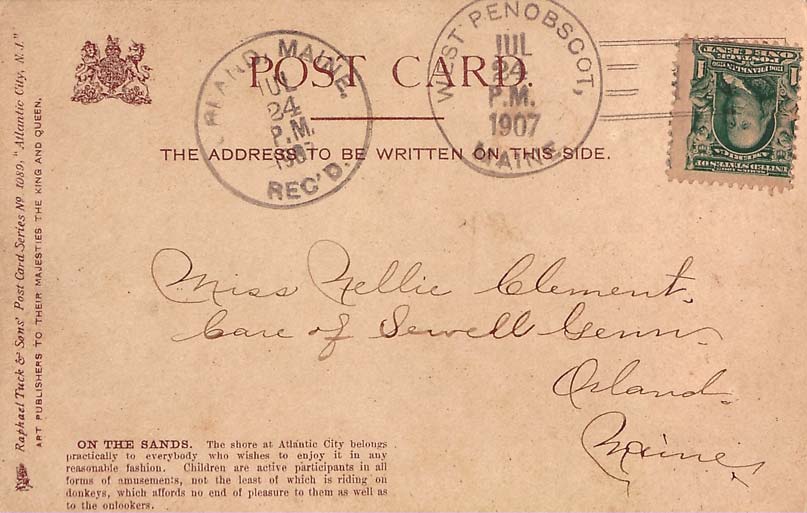 POST CARD.
THE ADDRESS TO BE WRITTEN ON THIS SIDE.
ORLAND, MAINE
JUL
24
P.M.
1907
REC'D.
WEST PENOBSCOT,
JUL
24
P.M.
1907
MAINE
1 1
ONE CENT
POSTAGE
UNITED STATES OF
AMERICA
Raphael Tuck & Sons' Post Card Series No 1089, "Atlantic City, N.J."
ART PUBLISHERS TO THEIR MAJESTIES THE KING AND QUEEN.
Miss Nellie Clement.
Care of Sewell Genn.
Orland.
Maine,
ON THE SANDS. The shore at Atlantic City belongs
practically to everybody who wishes to enjoy it in any
reasonable fashion. Children are active participants in all
forms of amusements, not the least of which is riding on
donkeys, which affords no end of pleasure to them as well as
to the onlookers.